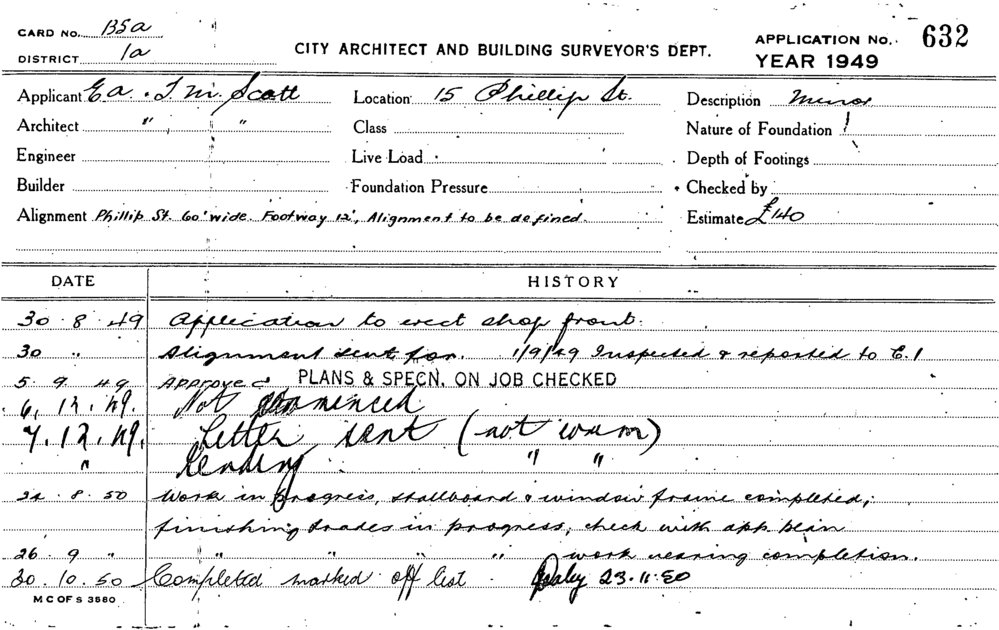 CARD No. BSa
DISTRICT 1a
CITY ARCHITECT AND BUILDING SURVEYOR'S DEPT.
APPLICATION No. 632
YEAR 1949
Applicant E.A. & T.M. Scott Location 15 Phillip St. Description Minor
Architect " " Class Nature of Foundation
Engineer Live Load Depth of Footings
Builder Foundation Pressure Checked by
Alignment Phillip St. 60' wide. Footway 12', Alignment to be defined. Estimate £140
DATE HISTORY
30.8.49 Application to erect shop front.
30 " Alignment sent for. 1/9/49 Inspected & reported to C.1
5.9.49 Approved PLANS & SPECN. ON JOB CHECKED
6.12.49. Not commenced
7.12.49. Letter sent (not wum)
" Pending " "
22.8.50 Work in progress, stallboard & window frame completed;
finishing trades in progress, check with app. plan
26.9 " " " " " work nearing completion.
30.10.50 Completed marked off list Daley 23.11.50
M C OF S 3580